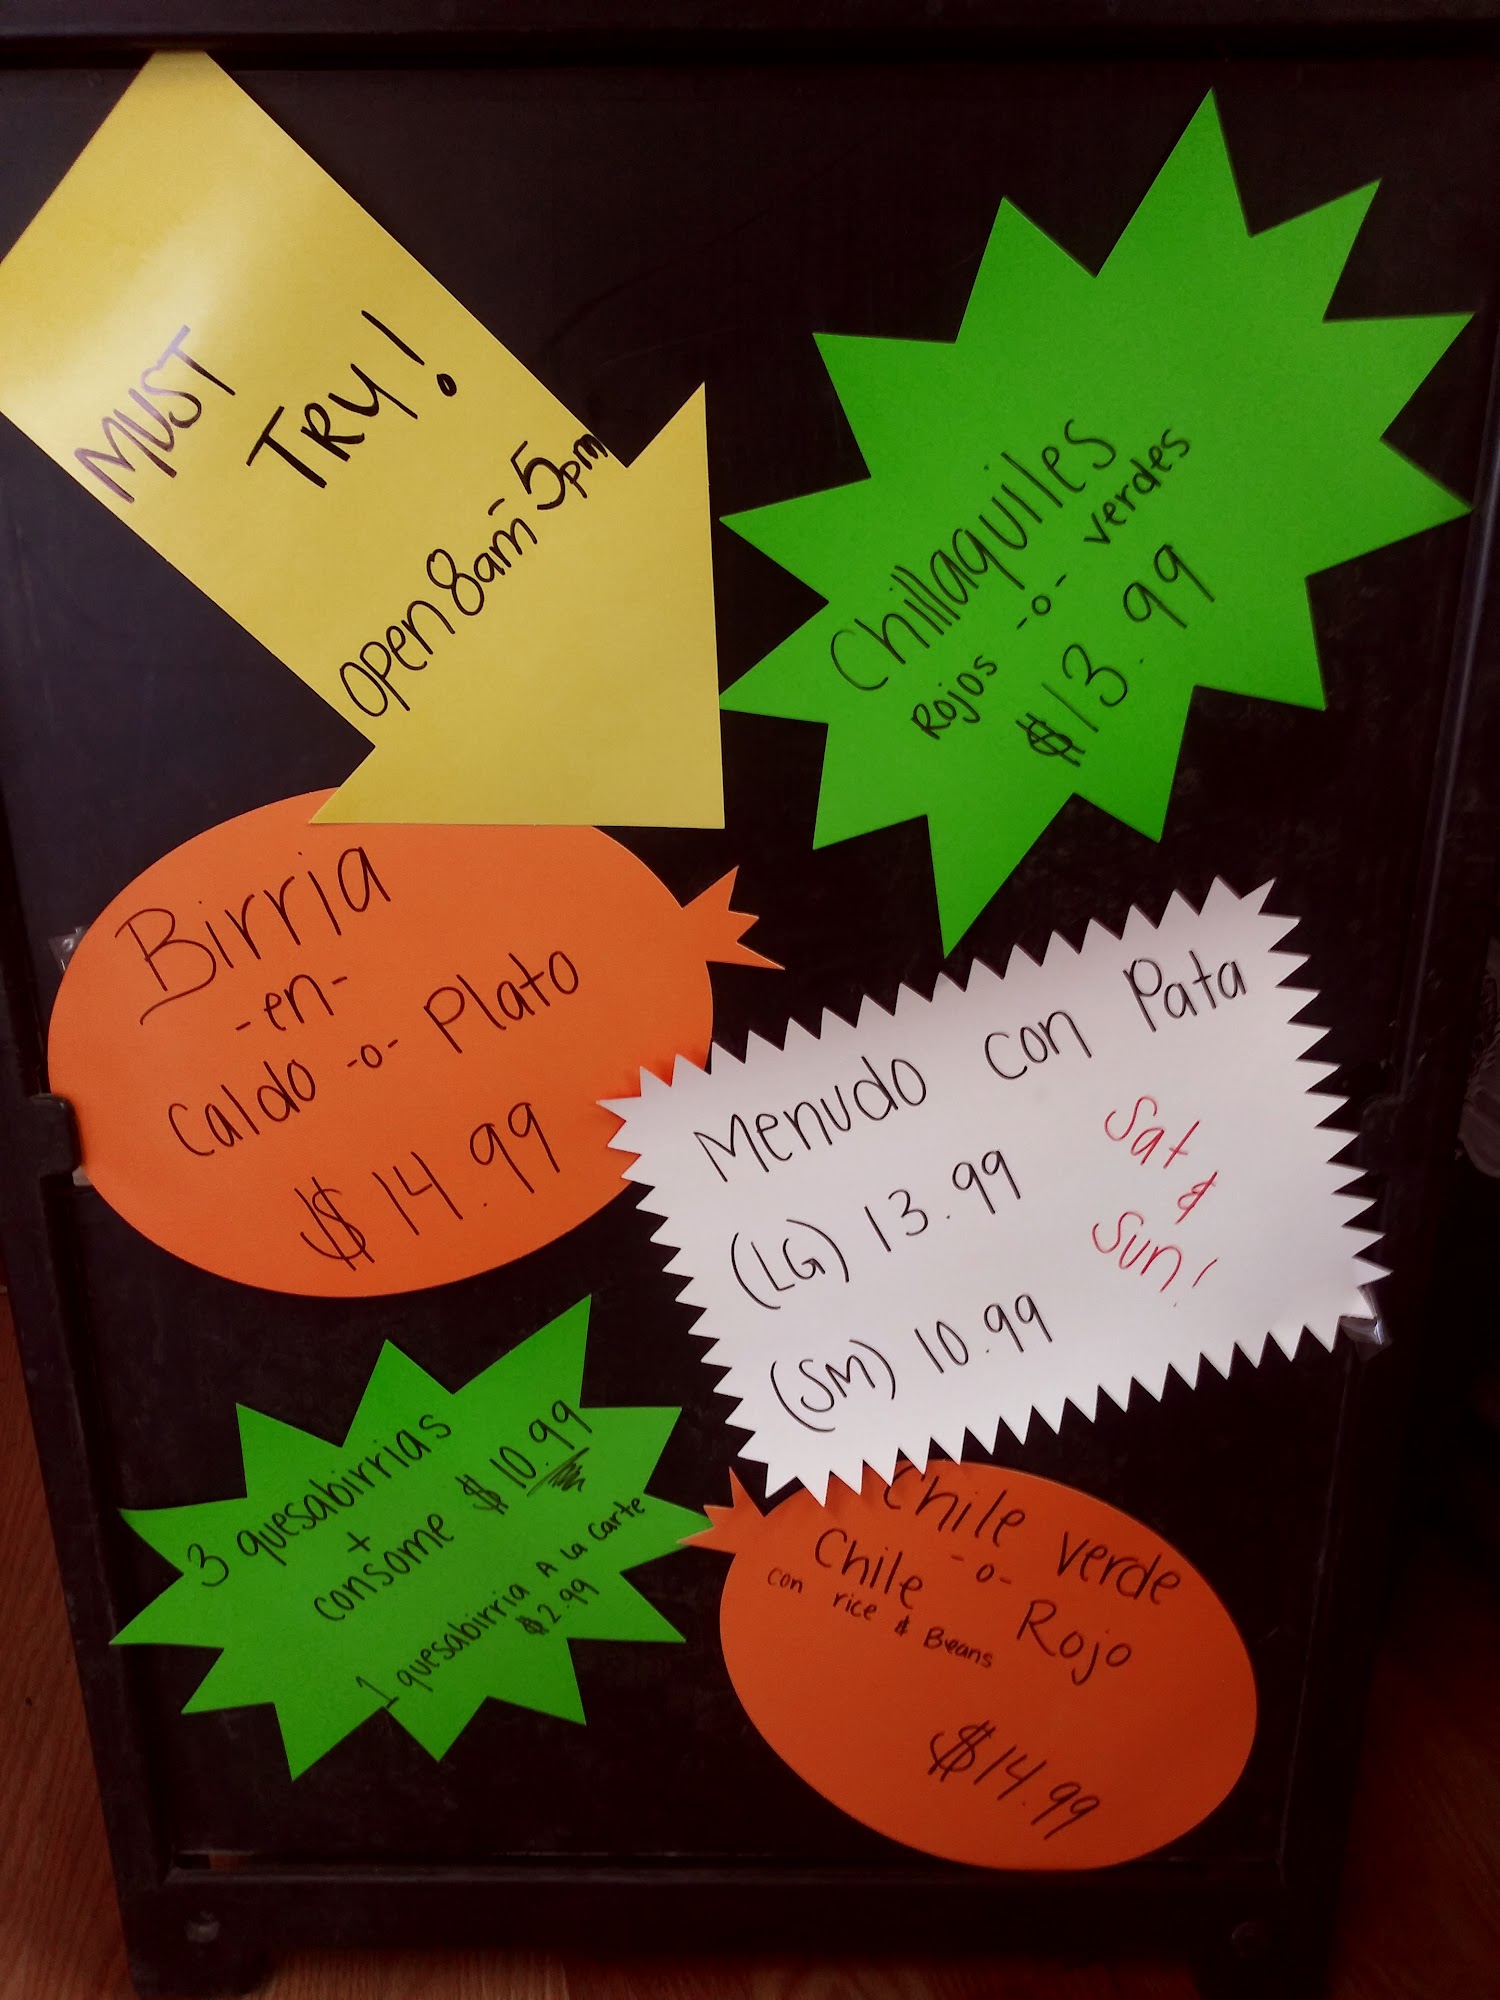 MUST
TRY!
Open 8am-5pm
Chillaquiles
Rojos -o- verdes
$13.99
Birria
-en-
Caldo -o- Plato
$14.99
Menudo con Pata
(LG) 13.99
(SM) 10.99
Sat
&
Sun!
3 quesabirrias
+
consome $10.99
1 quesabirria A La Carte
$2.99
Chile verde
-o-
Chile Rojo
con rice & Beans
$14.99